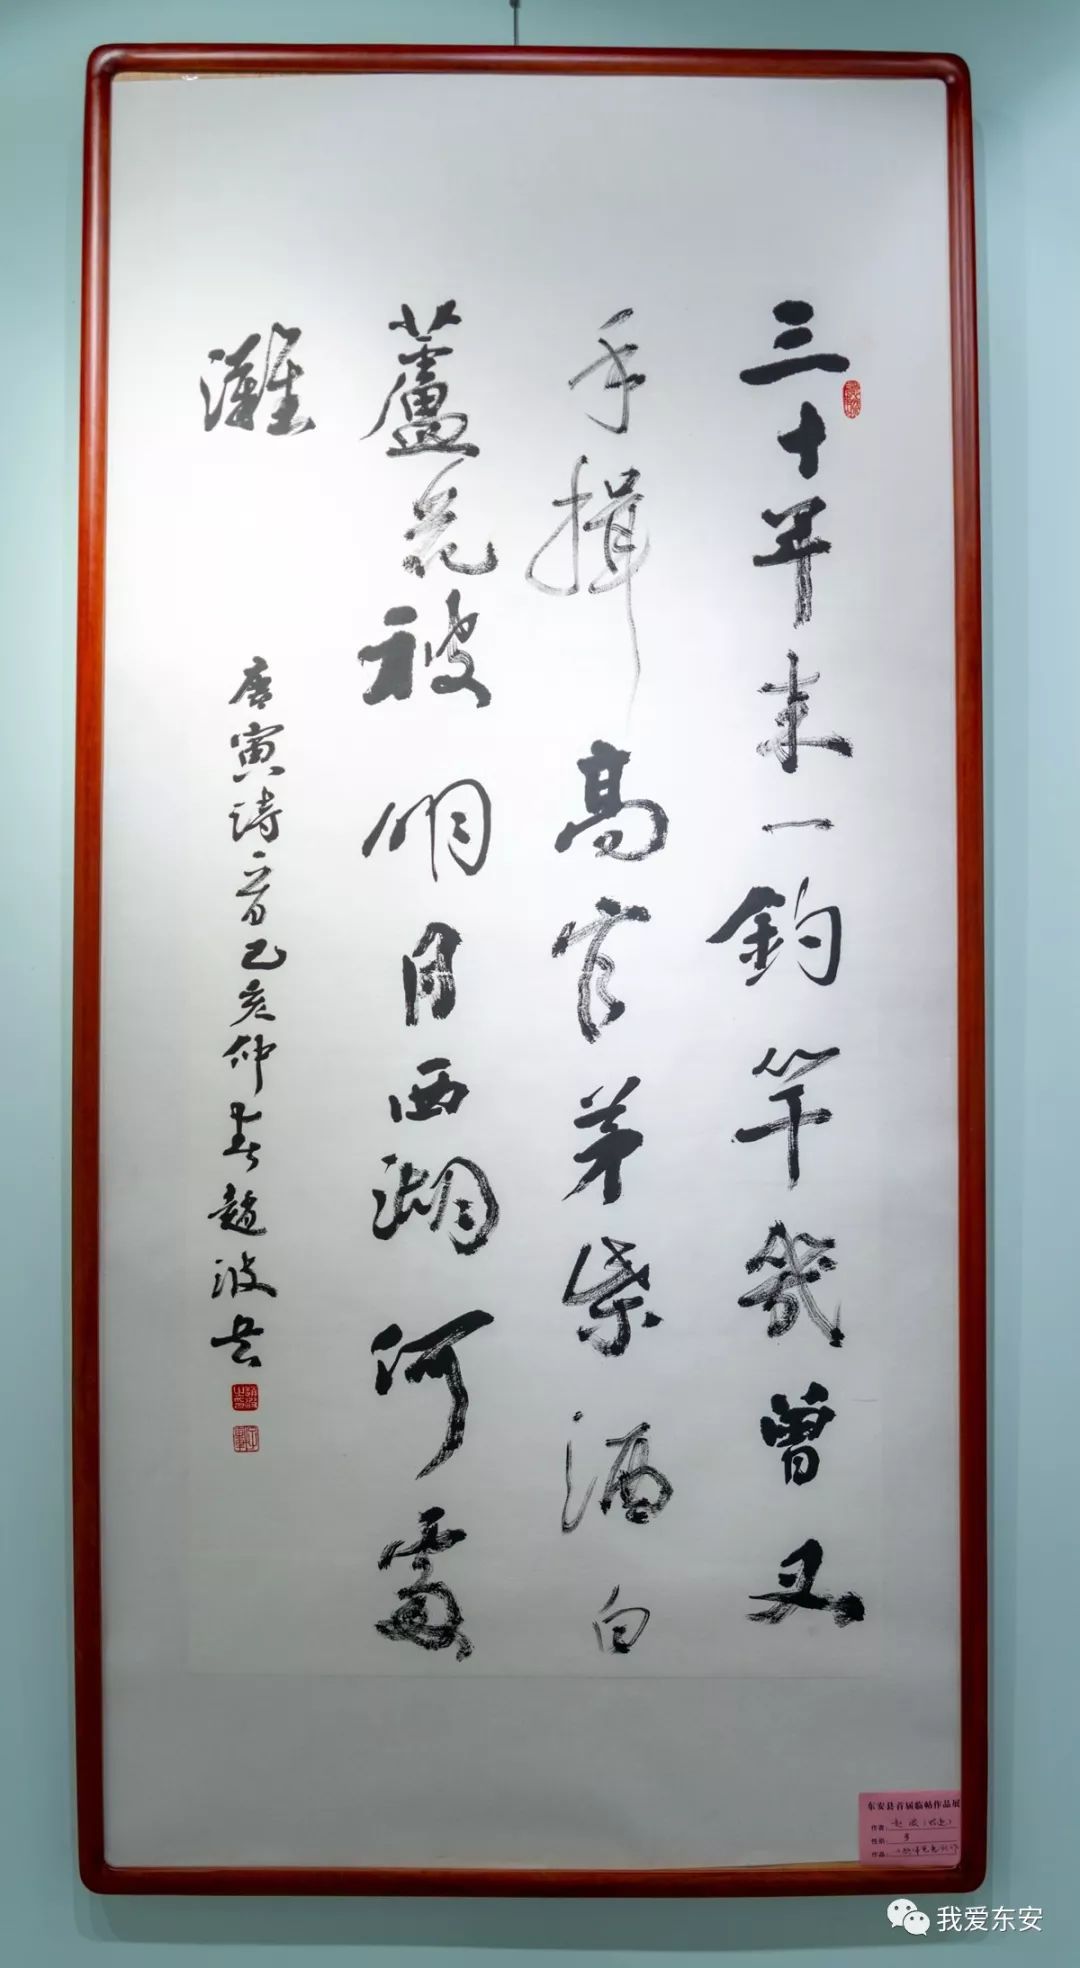 三十年来一釣竿幾曾叉
手揖高官茅柴酒白
蘆花被明月西湖何處
灘
唐寅詩一首己亥仲春趙波书
东安县首届临帖作品展
作者:
性别:
作品:
我爱东安